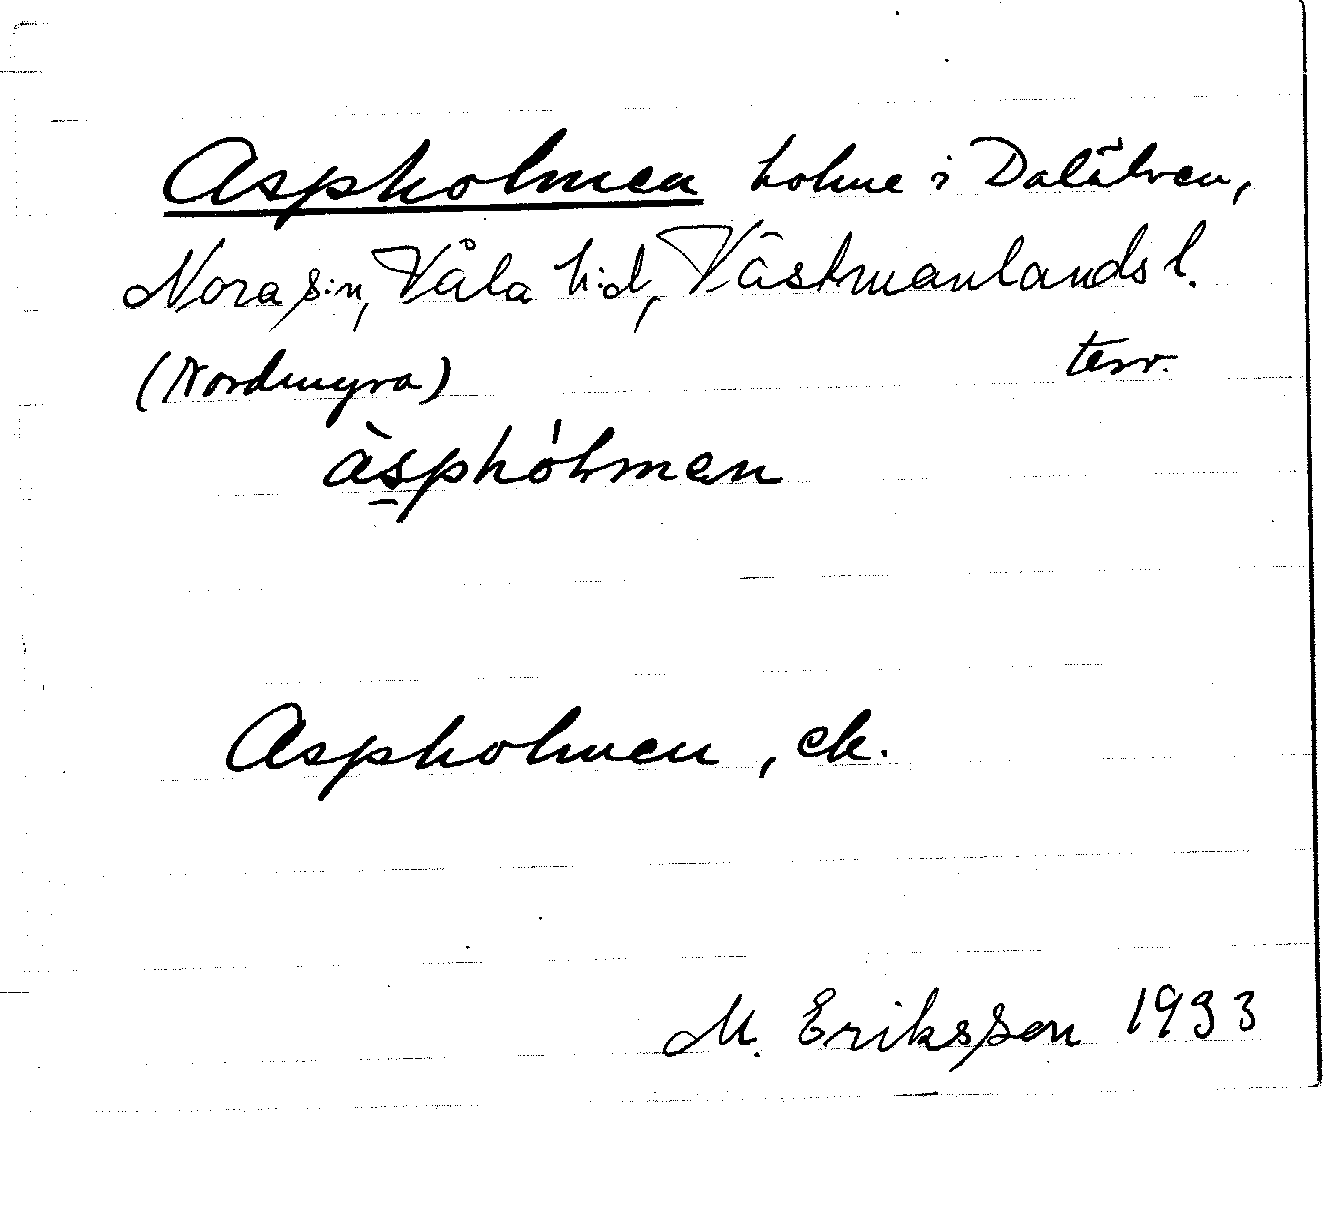 Aspholmen holme i Dalälven,
Nora s:n, Våla h:d, Västmanlands l.
(Nordmyra) terr.
àsphólmen
Aspholmen, ek.
M. Eriksson 1933